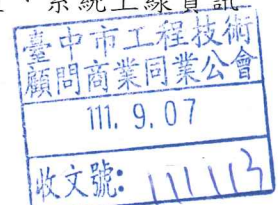 系統上線資訊
臺中市工程技術
顧問商業同業公會
111. 9. 07
收文號: 111113